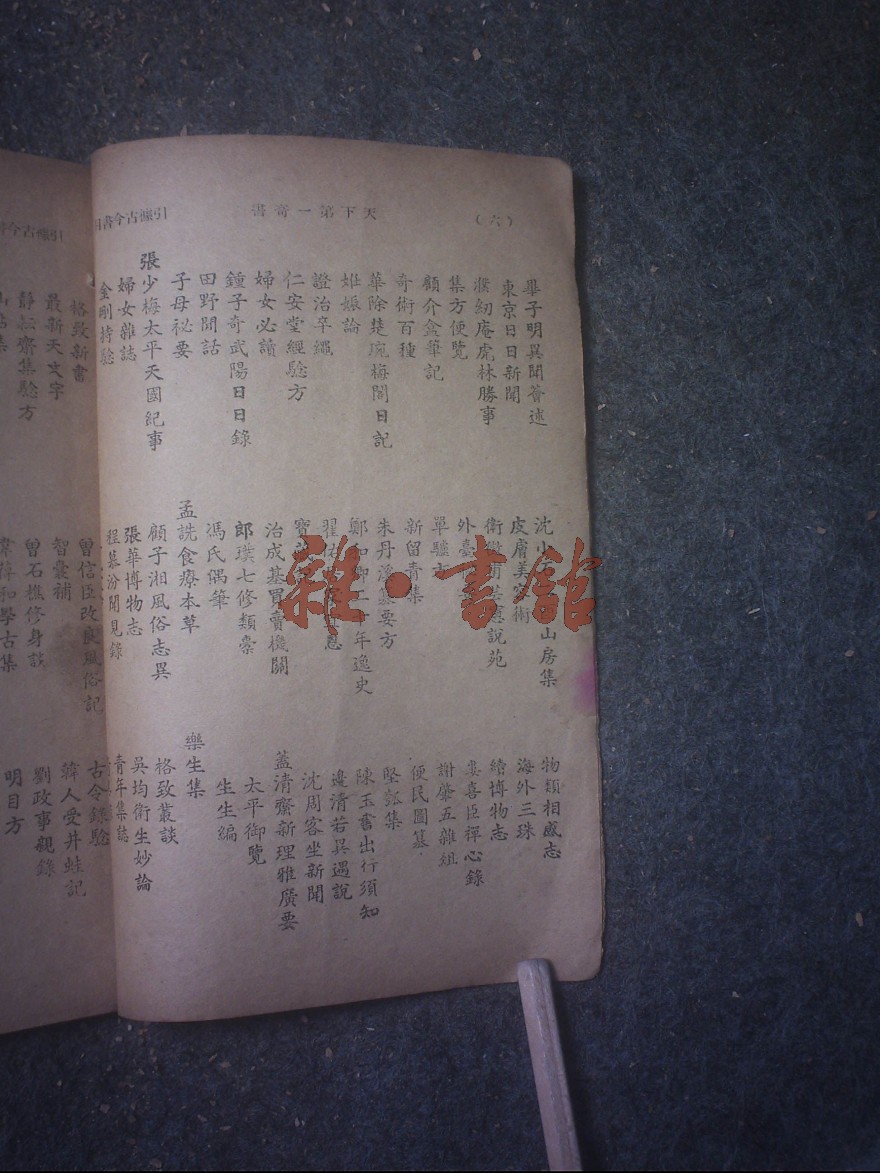 （六）
天下第一奇書
引據古今書目
畢子明異聞薈述
東京日日新聞
濮紉庵虎林勝事
集方便覽
顧介盦筆記
奇術百種
華除楚庑梅閣日記
妊娠論
證治辛繩
仁安堂經驗方
婦女必讀
鍾子奇武陽日日錄
田野聞話
子母祕要
張少梅太平天國紀事
婦女雜誌
金剛持驗
山房集
皮膚美容術
說苑
外臺
單驢方
新留青集
朱丹溪纂要方
年逸史
治成基買賣機關
郎瑛七修類稾
馮氏偶筆
孟詵食療本草
顧子湘風俗志異
張華博物志
程慕汾聞見錄
物類相感志
海外三珠
續博物志
婁喜臣禪心錄
謝肇五雜俎
便民圖纂
堅瓠集
陳玉書出行須知
邊清若異遇說
沈周客坐新聞
蓋清齋新理雅廣要
太平御覽
生生編
樂生集
格致叢談
吳均衛生妙論
青年集誌
引據古今書
格致新書
最新天文字
靜松齋集驗方
曾信臣改良風俗記
智囊補
曾石樵修身談
學古集
古今錄驗
韓人受井蛙記
劉政事親錄
明目方
雜·書館